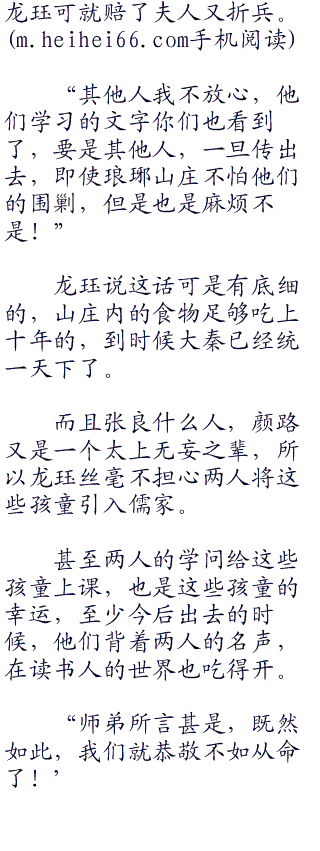 龙珏可就赔了夫人又折兵。
(m.heihei66.com手机阅读)
“其他人我不放心，他
们学习的文字你们也看到
了，要是其他人，一旦传出
去，即使琅琊山庄不怕他们
的围剿，但是也是麻烦不
是！”
龙珏说这话可是有底细
的，山庄内的食物足够吃上
十年的，到时候大秦已经统
一天下了。
而且张良什么人，颜路
又是一个太上无妄之辈，所
以龙珏丝毫不担心两人将这
些孩童引入儒家。
甚至两人的学问给这些
孩童上课，也是这些孩童的
幸运，至少今后出去的时
候，他们背着两人的名声，
在读书人的世界也吃得开。
“师弟所言甚是，既然
如此，我们就恭敬不如从命
了！’